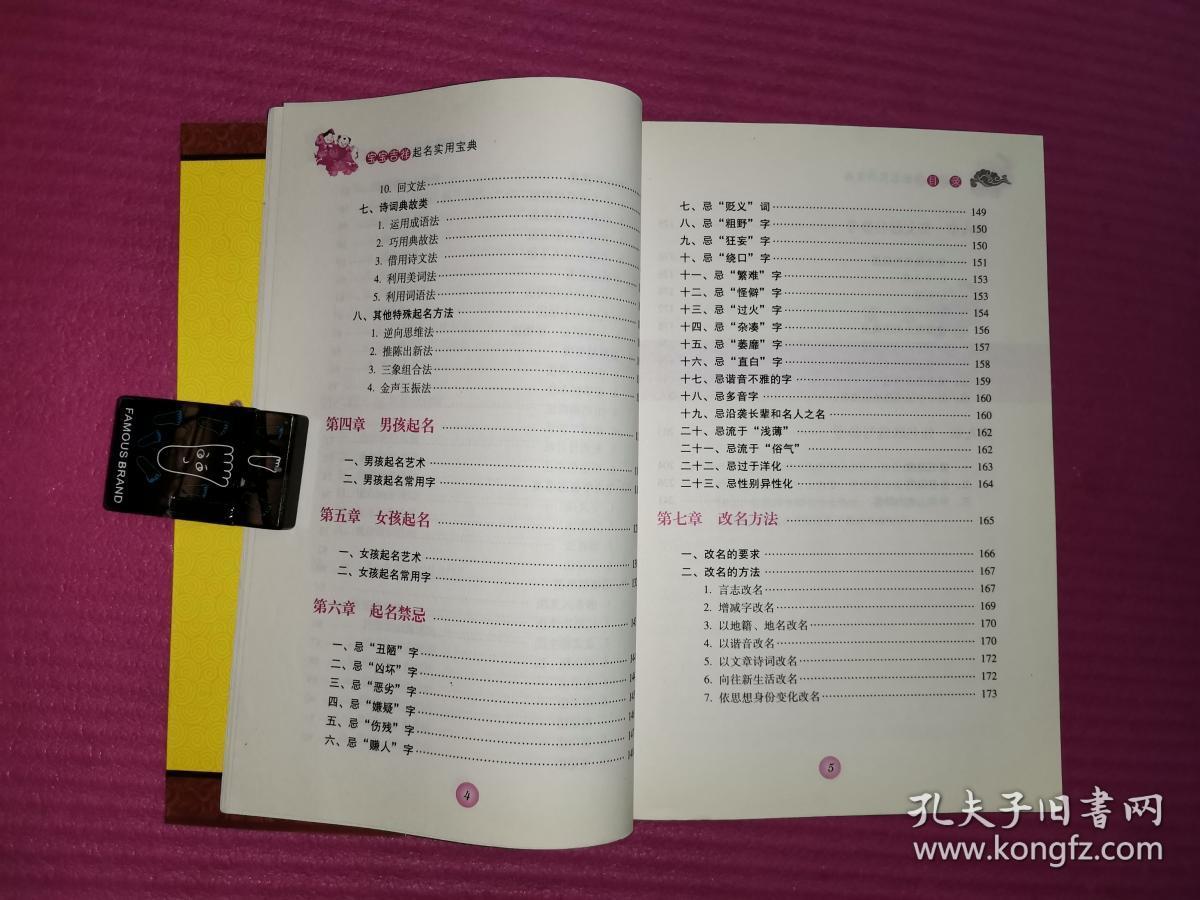 宝宝吉祥起名实用宝典
10. 回文法
七、诗词典故类
1. 运用成语法
2. 巧用典故法
3. 借用诗文法
4. 利用美词法
5. 利用词语法
八、其他特殊起名方法
1. 逆向思维法
2. 推陈出新法
3. 三象组合法
4. 金声玉振法
第四章 男孩起名
一、男孩起名艺术
二、男孩起名常用字
第五章 女孩起名
一、女孩起名艺术
二、女孩起名常用字
第六章 起名禁忌
一、忌“丑陋”字
二、忌“凶坏”字
三、忌“恶劣”字
四、忌“嫌疑”字
五、忌“伤残”字
六、忌“赚人”字
4
目录
七、忌“贬义”词 149
八、忌“粗野”字 150
九、忌“狂妄”字 150
十、忌“绕口”字 151
十一、忌“繁难”字 153
十二、忌“怪僻”字 153
十三、忌“过火”字 154
十四、忌“杂凑”字 156
十五、忌“萎靡”字 157
十六、忌“直白”字 158
十七、忌谐音不雅的字 159
十八、忌多音字 160
十九、忌沿袭长辈和名人之名 160
二十、忌流于“浅薄” 162
二十一、忌流于“俗气” 162
二十二、忌过于洋化 163
二十三、忌性别异性化 164
第七章 改名方法 165
一、改名的要求 166
二、改名的方法 167
1. 言志改名 167
2. 增减字改名 169
3. 以地籍、地名改名 170
4. 以谐音改名 170
5. 以文章诗词改名 172
6. 向往新生活改名 172
7. 依思想身份变化改名 173
5
FAMOUS BRAND
孔夫子旧书网
www.kongfz.com